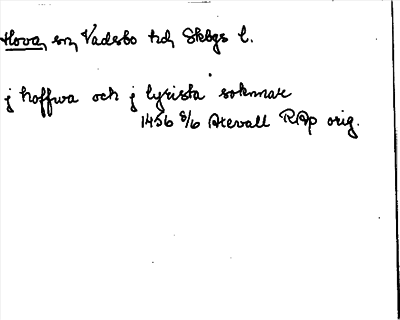 Hova, sn, Vadsbo hd, Skbgs l.
j hoffwa och j lyrista soknnar
1456 8/6 Axevall RAp orig.